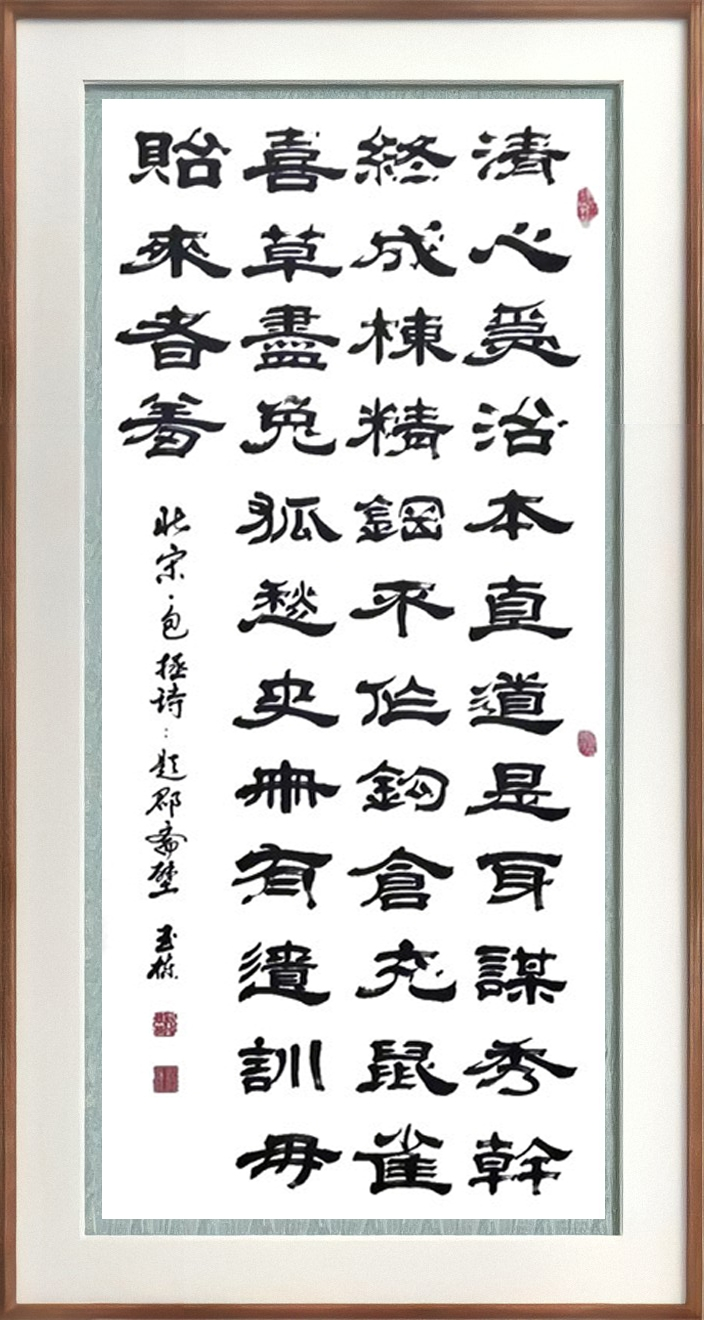 清心爲治本直道是身謀秀幹
終成棟精鋼不作鈎倉充鼠雀
喜草盡兔狐愁史冊有遺訓毋
貽來者羞
北宋·包拯詩：題郡齋壁 玉